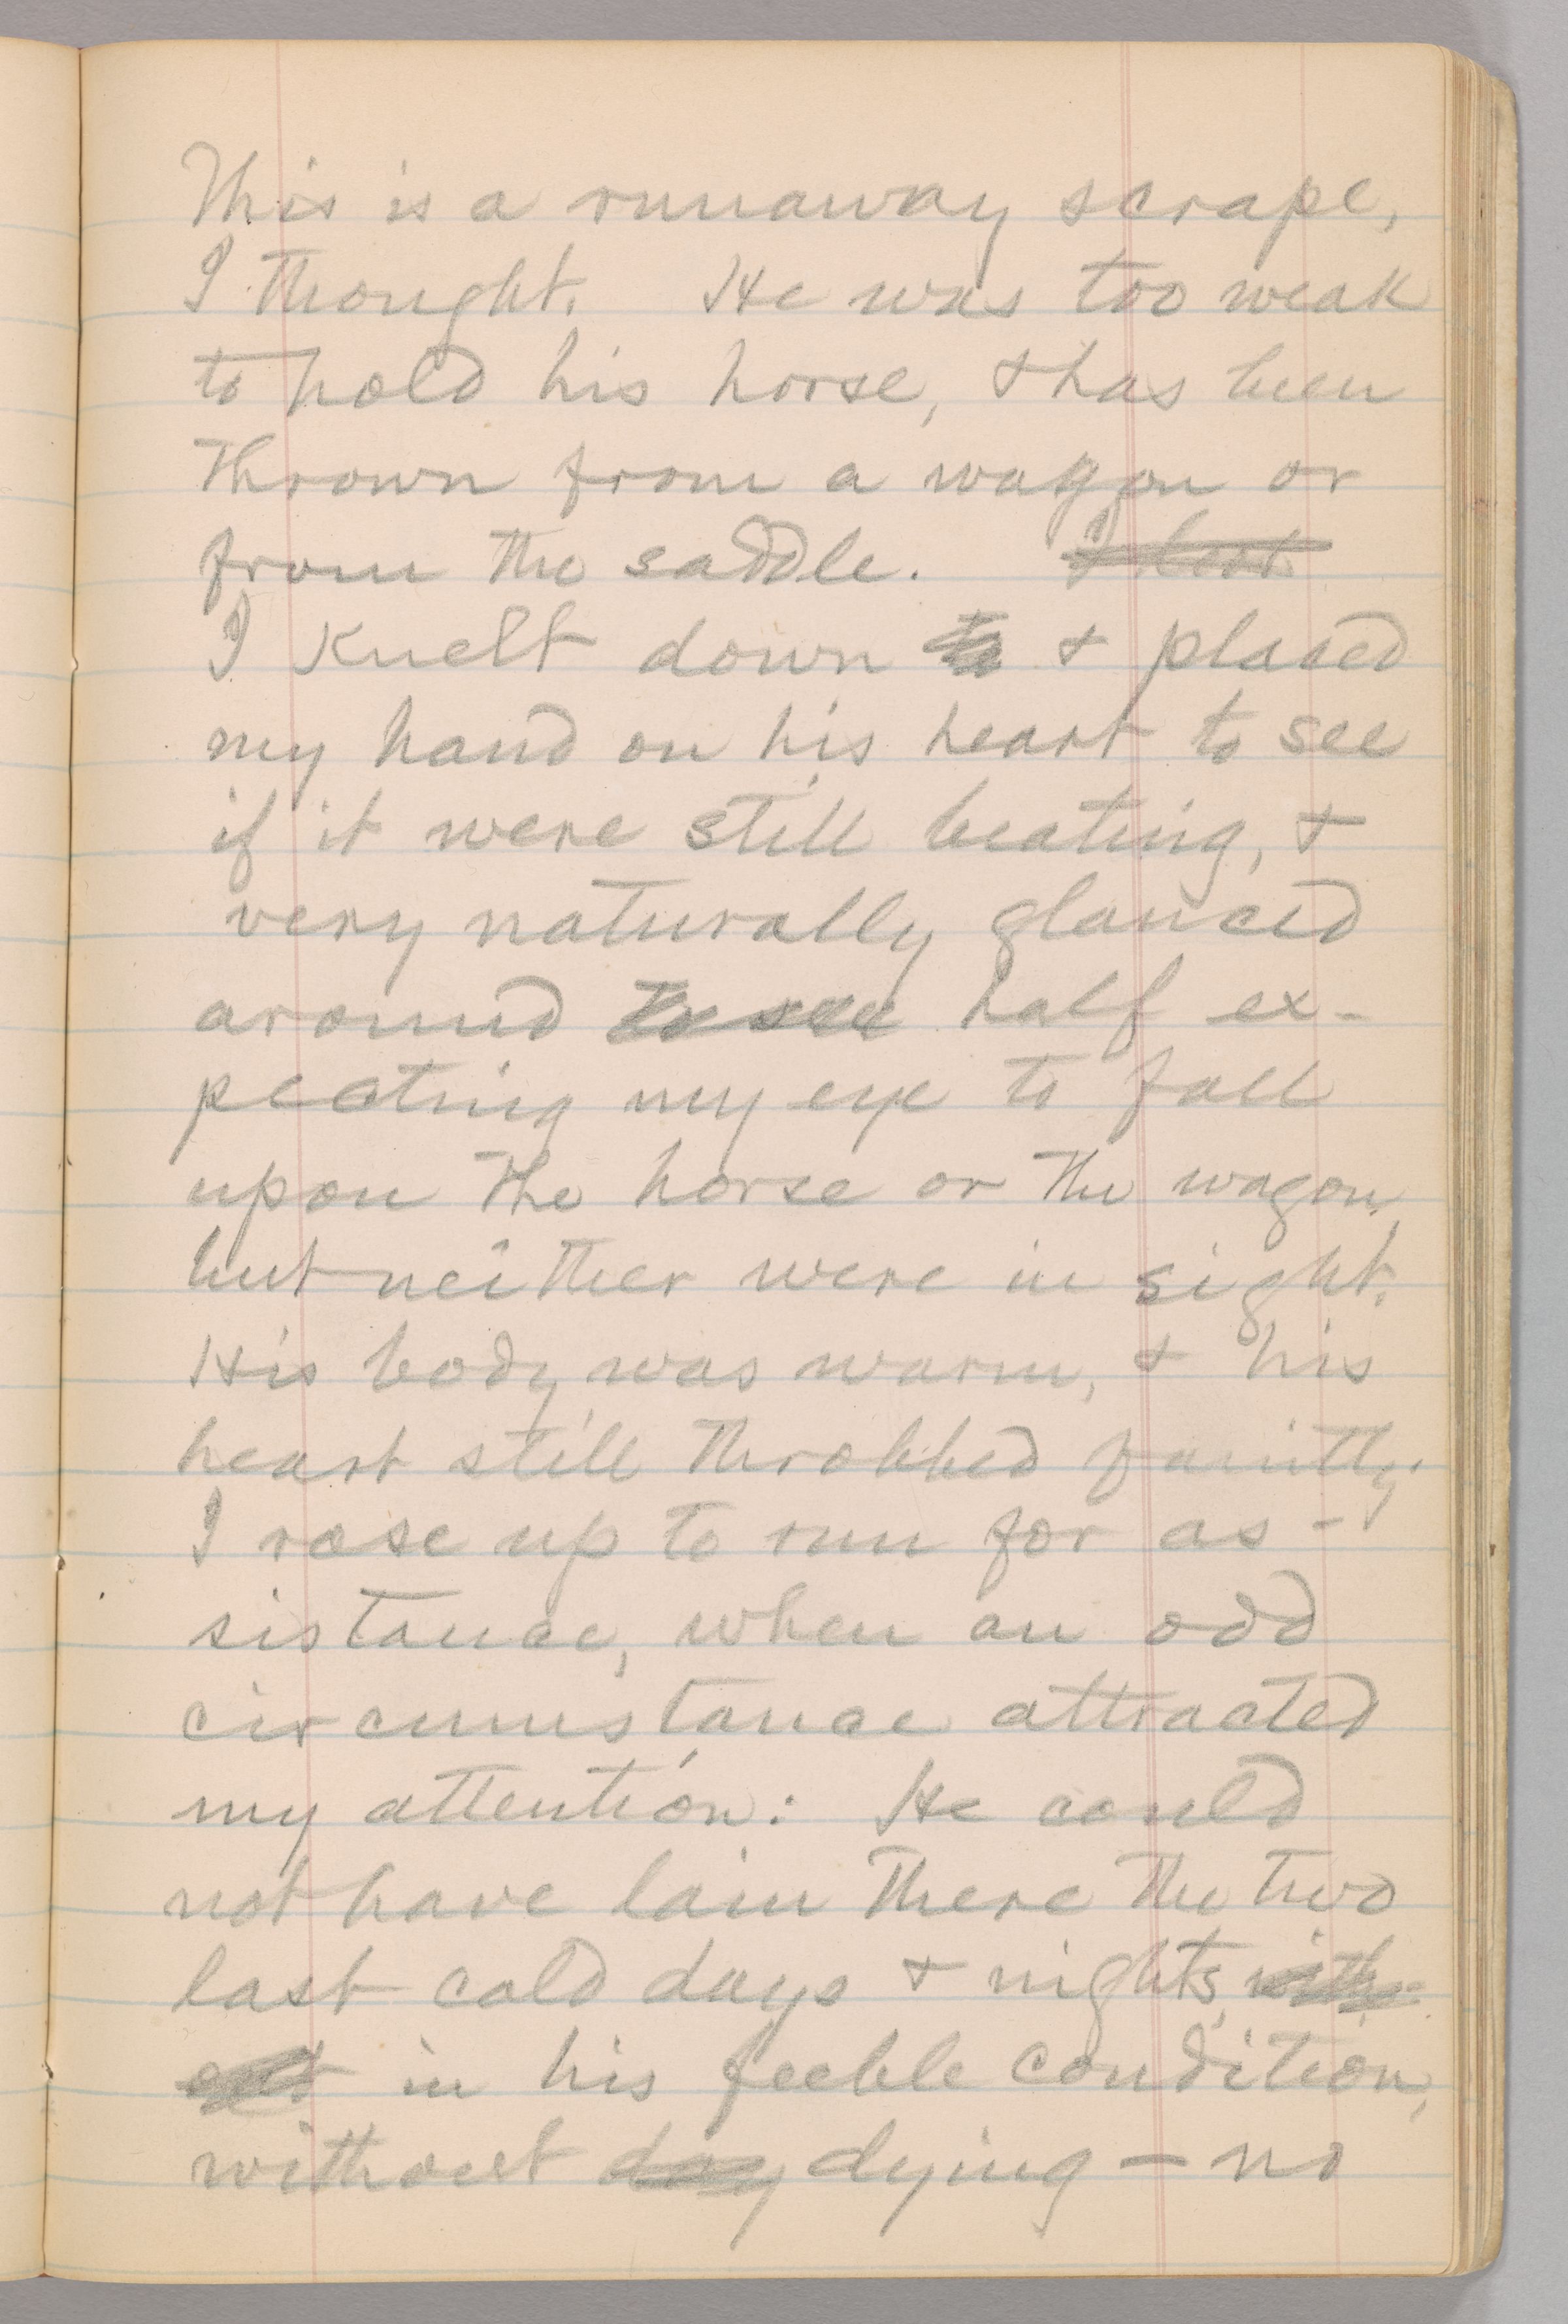 This is a runaway scrape,
I thought. He was too weak
to hold his horse, & has been
thrown from a wagon or
from the saddle.
I knelt down to & placed
my hand on his heart to see
if it were still beating, &
very naturally glanced
around to see half ex-
pecting my eye to fall
upon the horse or the wagon,
but neither were in sight.
His body was warm, & his
heart still throbbed faintly.
I rose up to run for as-
sistance, when an odd
circumstance attracted
my attention: He could
not have lain there the two
last cold days & nights, with
out in his feeble condition,
without day dying — no